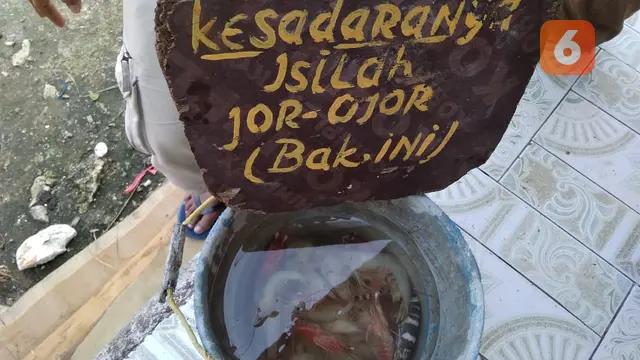 kESadARANya
ISiLah
JOR-OJOR
(Bak.iNi)
6